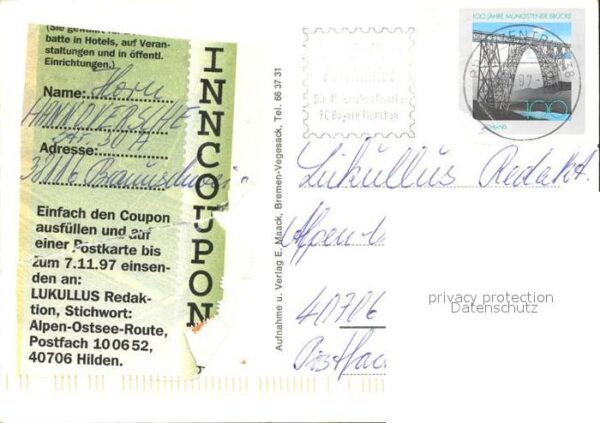 (Sie gewährt für
batte in Hotels, auf Veran-
staltungen und in öffentl.
Einrichtungen.)
Name: Horn
HANNOVERSCHE
Str. 30A
Adresse:
38116 Braunschweig
Einfach den Coupon
ausfüllen und auf
einer Postkarte bis
zum 7.11.97 einsen-
den an:
LUKULLUS Redak-
tion, Stichwort:
Alpen-Ostsee-Route,
Postfach 100652,
40706 Hilden.
INNCOUPON
Aufnahme u. Verlag E. Maack, Bremen-Vegesack, Tel. 66 37 31
FC Bayern München
100 JAHRE MÜNGSTENER BRÜCKE
100
Lukullus Redakt.
Alpen-
40706
Postfac
privacy protection
Datenschutz